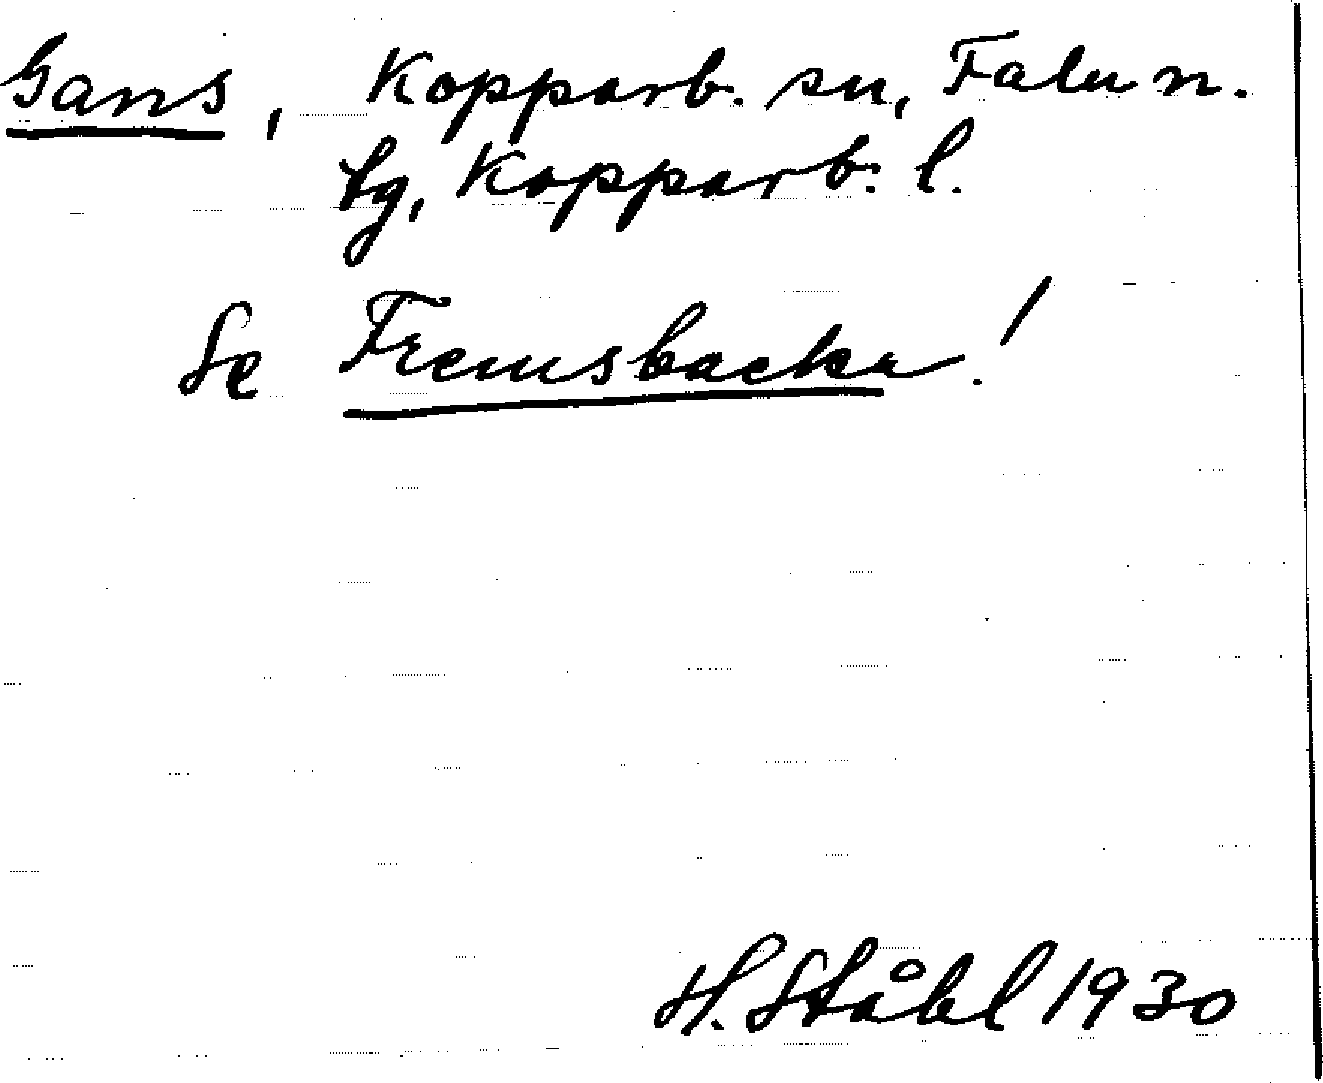 Gans, Kopparb. sn, Falu n.
tg, Kopparb. l.
Se Fremsbacka!
H. Ståhl 1930